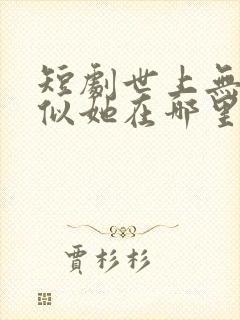 短劇世上無
似她在哪里
賈杉杉